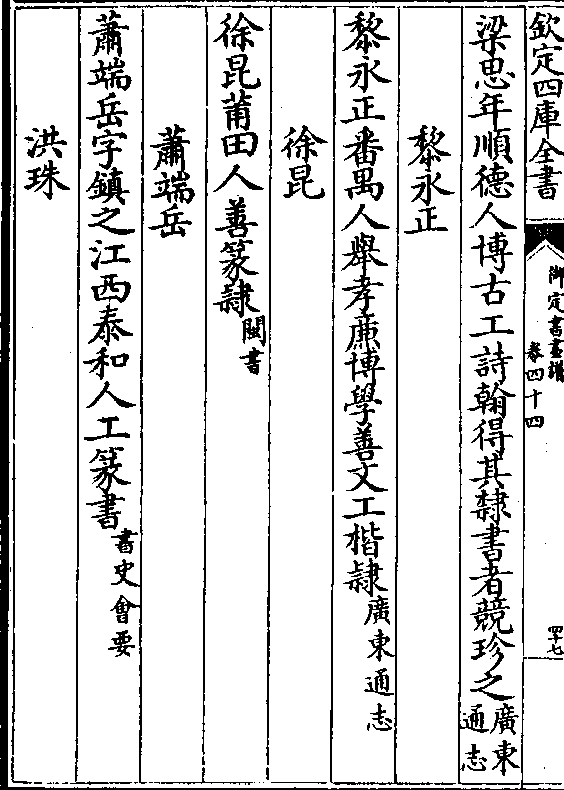 欽定四庫全書
御定書畫譜
卷四十四
四十七
梁思年順德人博古工詩翰得其隸書者競珍之廣東通志
黎永正
黎永正番禺人舉孝廉博學善文工楷隸廣東通志
徐昆
徐昆莆田人善篆隸閩書
蕭端岳
蕭端岳字鎮之江西泰和人工篆書書史會要
洪珠